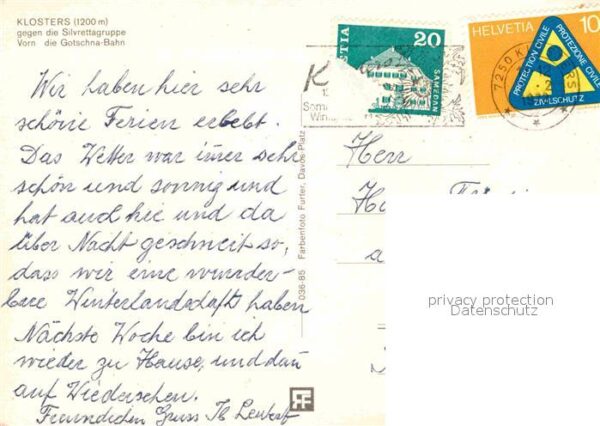 KLOSTERS (1200 m)
gegen die Silvrettagruppe
Vorn die Gotschna-Bahn
Wir haben hier sehr
schöne Ferien erlebt.
Das Wetter war imer sehr
schön und sonnig und
hat auch hie und da
über Nacht geschneit so,
dass wir eine wunder-
bare Winterlandschaft haben
Nächste Woche bin ich
wieder zu Hause, und dan
auf Wiedersehen.
Freundlichen Gruss
036-85 Farbenfoto Furter, Davos-Platz
20
SAMEDAN
HELVETIA
10
PROTECTION CIVILE
PROTEZIONE CIVILE
ZIVILSCHUTZ
7250 K
Herr
privacy protection
Datenschutz